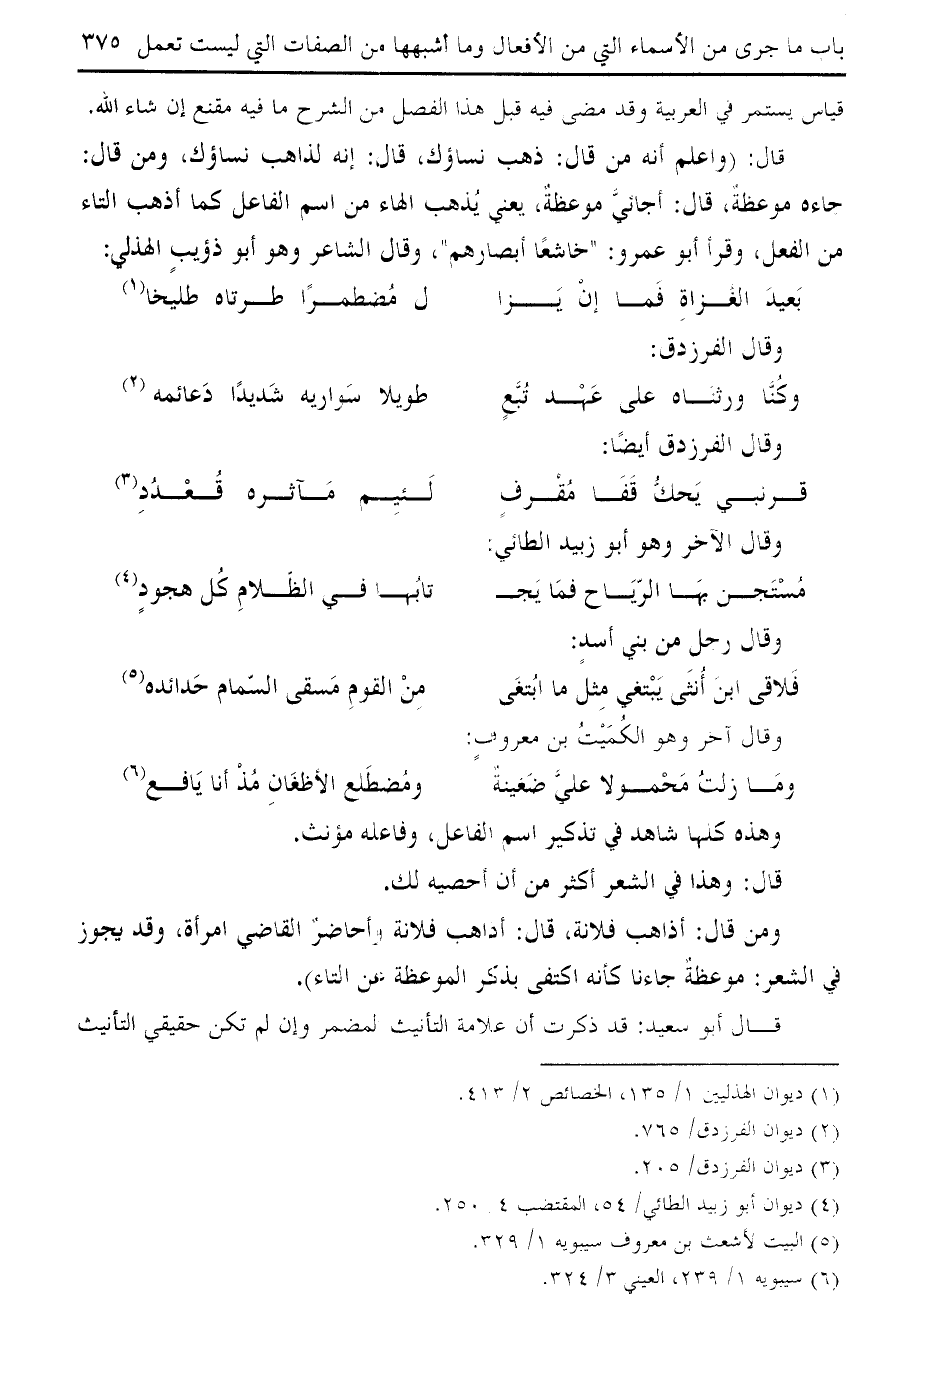 باب ما جرى من الأسماء التي من الأفعال وما أشبهها من الصفات التي ليست تعمل ٣٧٥
قياس يستمر في العربية وقد مضى فيه قبل هذا الفصل من الشرح ما فيه مقنع إن شاء الله.
قال: (واعلم أنه من قال: ذهب نساؤك، قال: إنه لذاهب نساؤك، ومن قال:
جاءه موعظةٌ، قال: أجائيَّ موعظةٌ، يعني يُذهب الهاء من اسم الفاعل كما أذهب التاء
من الفعل، وقرأ أبو عمرو: "خاشعًا أبصارهم"، وقال الشاعر وهو أبو ذؤيبٍ الهذلي:
بَعيدَ الغَزاةِ فَما إنْ يَزا ل مُضطمرًا طرتاه طليخا(١)
وقال الفرزدق:
وكُنَّا ورثناه على عَهْد تُبَّعٍ طويلا سَواريه شَديدًا دَعائمه (٢)
وقال الفرزدق أيضًا:
قرنبي يَحكُّ قَفَا مُقْرفٍ لَئِيم مَآثره قُعْدُدِ(٣)
وقال الآخر وهو أبو زبيد الطائي:
مُسْتَحن بهَا الرّيَاح فمَا يَجـ تابُها في الظّلامِ كُل هجودٍ(٤)
وقال رجل من بني أسدٍ:
فَلاقى ابنَ أُنثَى يَبْتغي مِثل ما ابْتغَى منْ القومِ مَسقى السّمام حَدائده(٥)
وقال آخر وهو الكُمَيْتُ بن معروفٍ:
ومَا زلتُ مَحْمولا عليَّ ضَغينةٌ ومُضطَلع الأظغَانِ مُذْ أنا يَافع(٦)
وهذه كلها شاهد في تذكير اسم الفاعل، وفاعله مؤنث.
قال: وهذا في الشعر أكثر من أن أحصيه لك.
ومن قال: أذاهب فلانة، قال: أذاهب فلانة وأحاضرٌ القاضي امرأة، وقد يجوز
في الشعر: موعظةٌ جاءنا كأنه اكتفى بذكر الموعظة عن التاء).
قال أبو سعيد: قد ذكرت أن علامة التأنيث لمضمر وإن لم تكن حقيقي التأنيث
(١) ديوان الهذليين ١/ ١٣٥، الخصائص ٢/ ٤١٣.
(٢) ديوان الفرزدق/ ٧٦٥.
(٣) ديوان الفرزدق/ ٢٠٥.
(٤) ديوان أبو زبيد الطائي/ ٥٤، المقتضب ٤ ٢٥٠.
(٥) البيت لأشعث بن معروف سيبويه ١/ ٣٢٩.
(٦) سيبويه ١/ ٢٣٩، العيني ٣/ ٣٢٤.